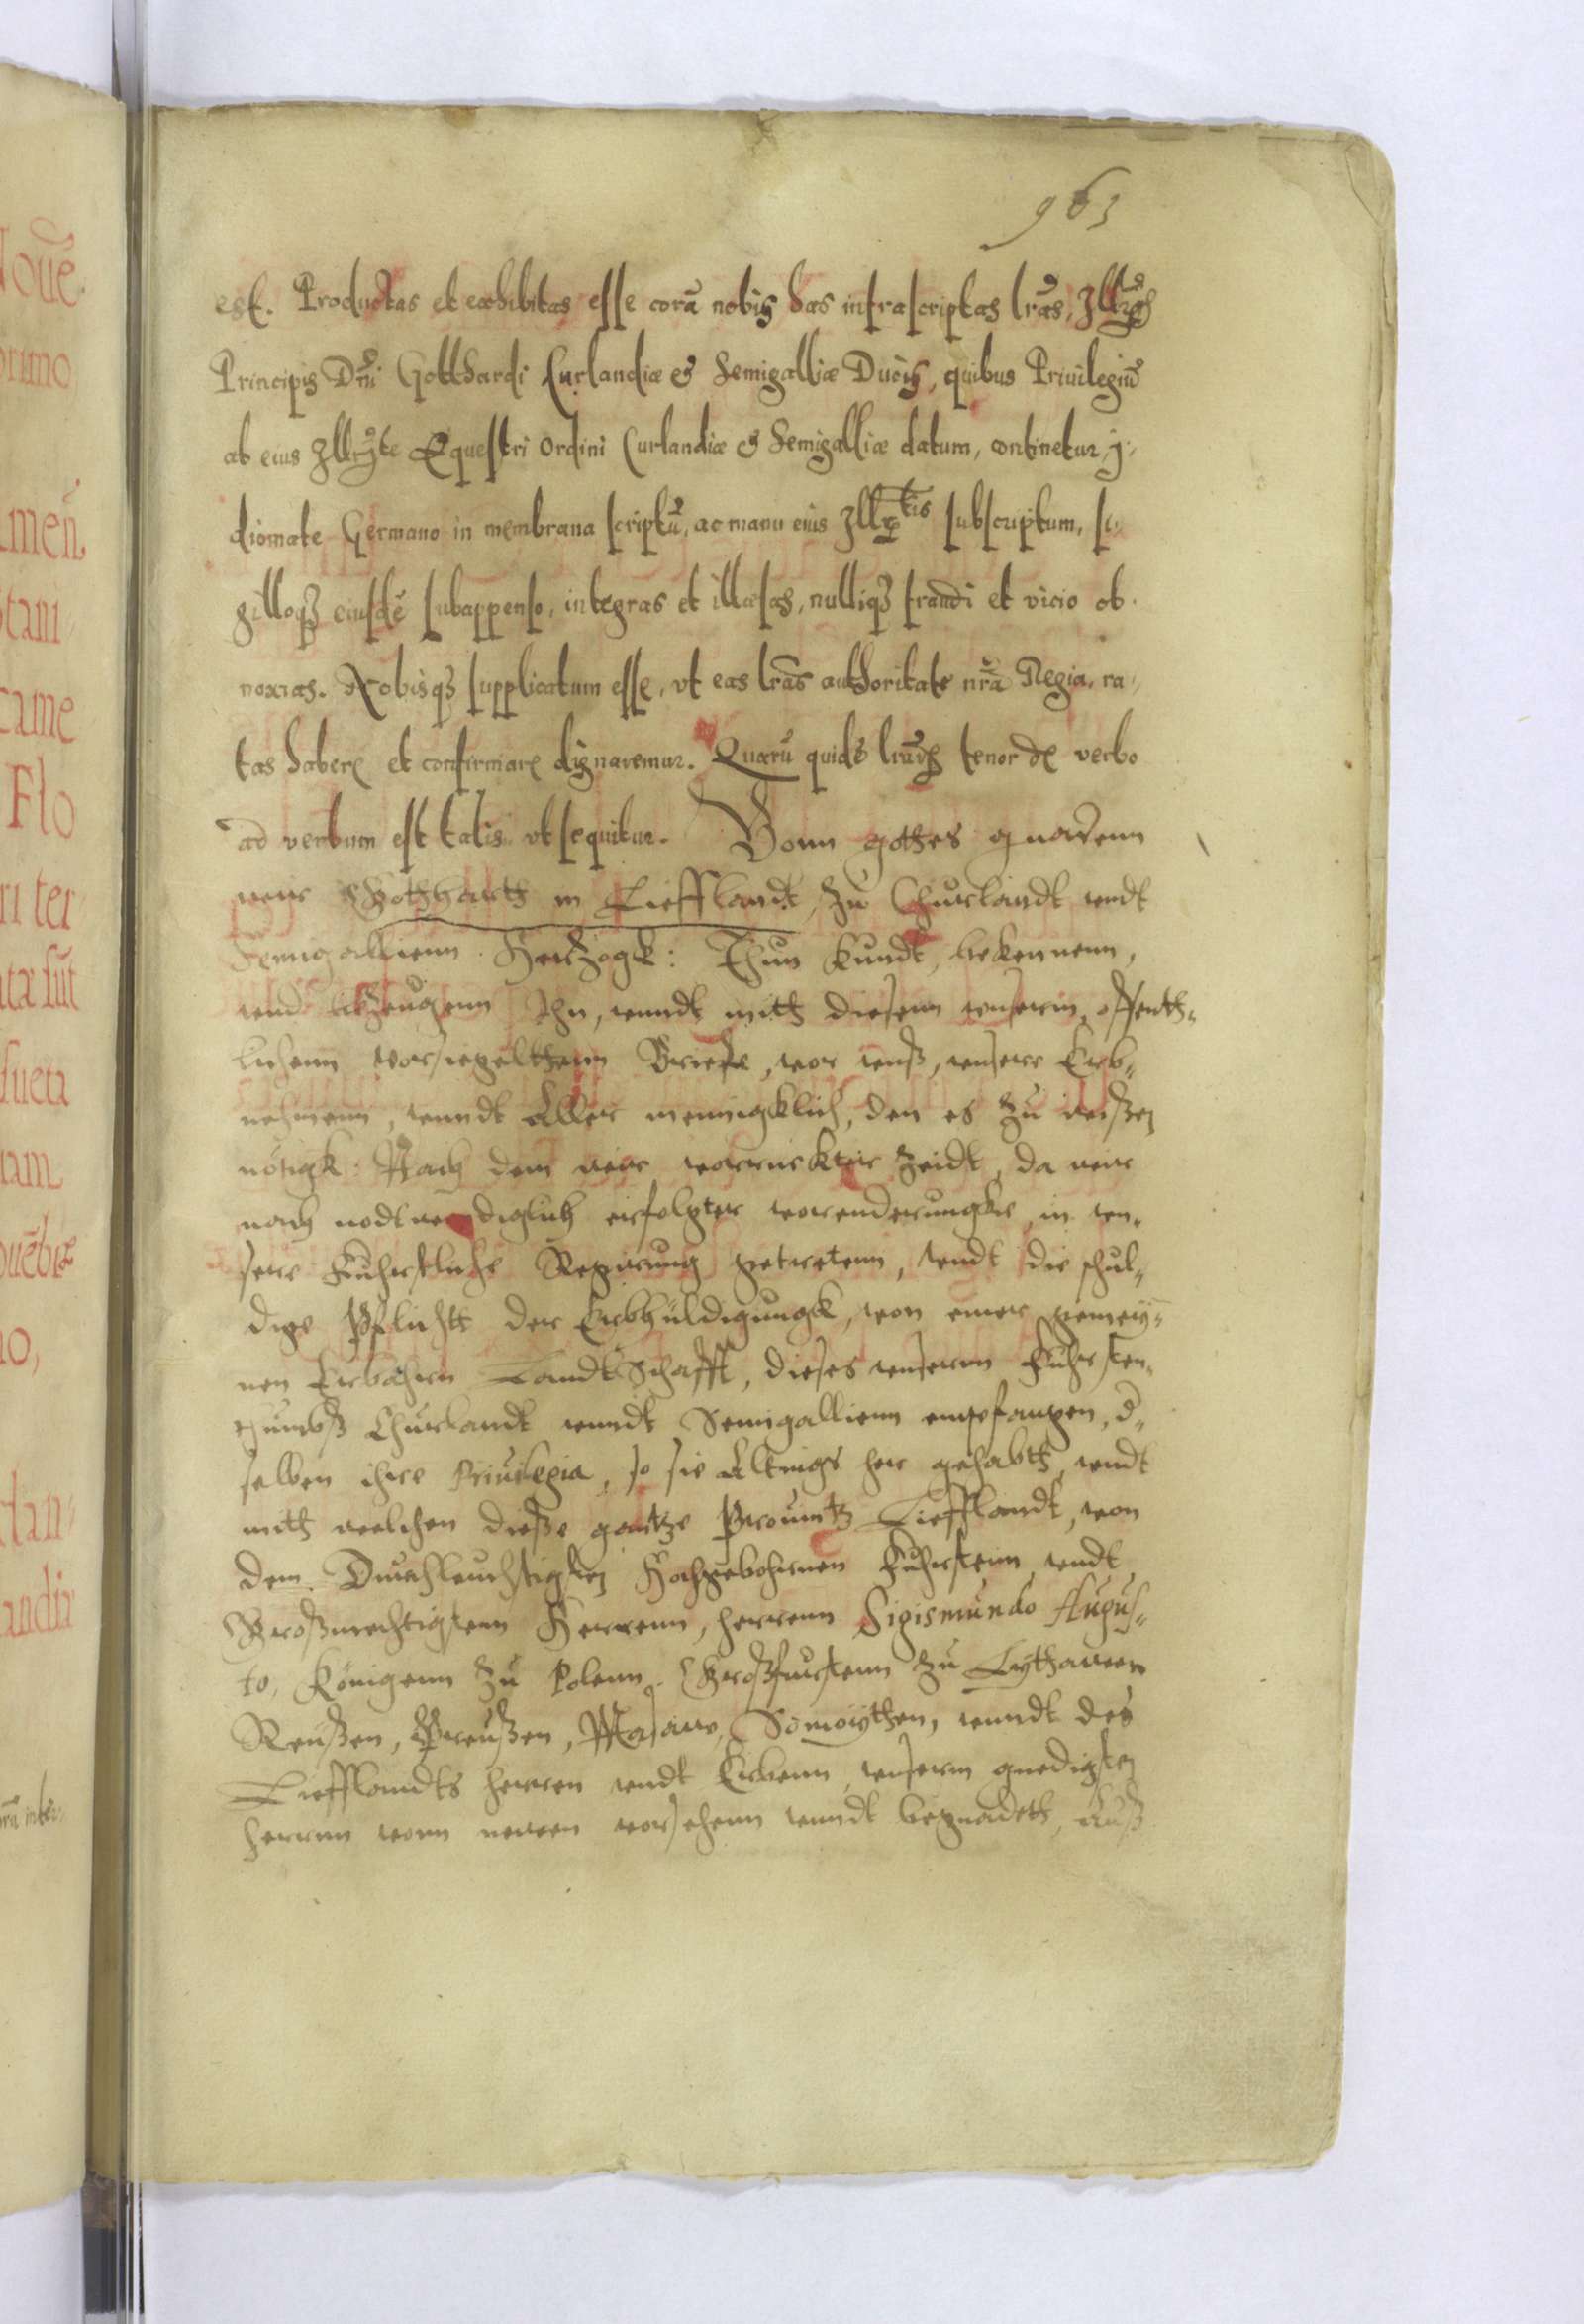 963
est. Productas et exhibitas esse corā nobis has infrascriptas lrãs, Illris
Principis Dñi Gotthardi Curlandiæ & Semigalliæ Ducis, quibus Priuilegiũ
ab eius Illrte Equestri Ordini Curlandiæ & Semigalliæ datum, continetur, j:
diomate Germano in membrana scriptũ, ac manu eius Illrtis subscriptum, si:
gilloqȝ eiusdē subappenso, integras et illæsas, nulliqȝ fraudi et vicio ob:
noxias. Nobisqȝ supplicatum esse, vt eas lrãs authoritate nrã Regia, ra:
tas habere et confirmare dignaremur. Quarũ quidē lrãrũ tenor de verbo
ad verbum est talis vt sequitur. Vonn gottes gnadenn
wir Gotthartt in Liefflandt, zu Churlandt vndt
Semigallienn Hertzogk: Thun kundt, bekennenn,
vnd bezeugenn Ihn, vnndt mitt diesenn vnserm offent„
lichenn vorsiegelthenn Brieffe, vor vnß, vnsere Erb„
nehmenn, vnndt Aller menningklich, den es zu wißen
nötigk: Nach dem wir vorruckter zeidt, da wir
nach nodtwendiglich erfolgter vorenderungke, in vn„
sere Fuhrstliche Regirung getretenn, vndt die schul„
dige Pflichtt der Erbhuldigungk, von einer gemey„
nen Erbahrn Landtschafft, dieses vnserm Fuhrsten„
thumbß Churlandt vnndt Semigallienn empfangen, d„
selben ihre Priuilegia, so sie Altings her gehabtt, vndt
mitt welchen diese gantze Prouintz Liefflandt, von
dem Durchleuchtigsten Hochgebohrnen Fuhrstenn vndt
Großmechtigstenn Herrenn, herrenn Sigismundo Augus„
to, Königenn zu Polenn, Großfurstenn zu Lythawen
Reußen, Preußen, Masaw, Samoythen, vnndt des
Liefflandts herren vndt Erbenn, vnserm gnedigsten
herrnn vonn newen vorsehenn vnndt begnadett, Auß